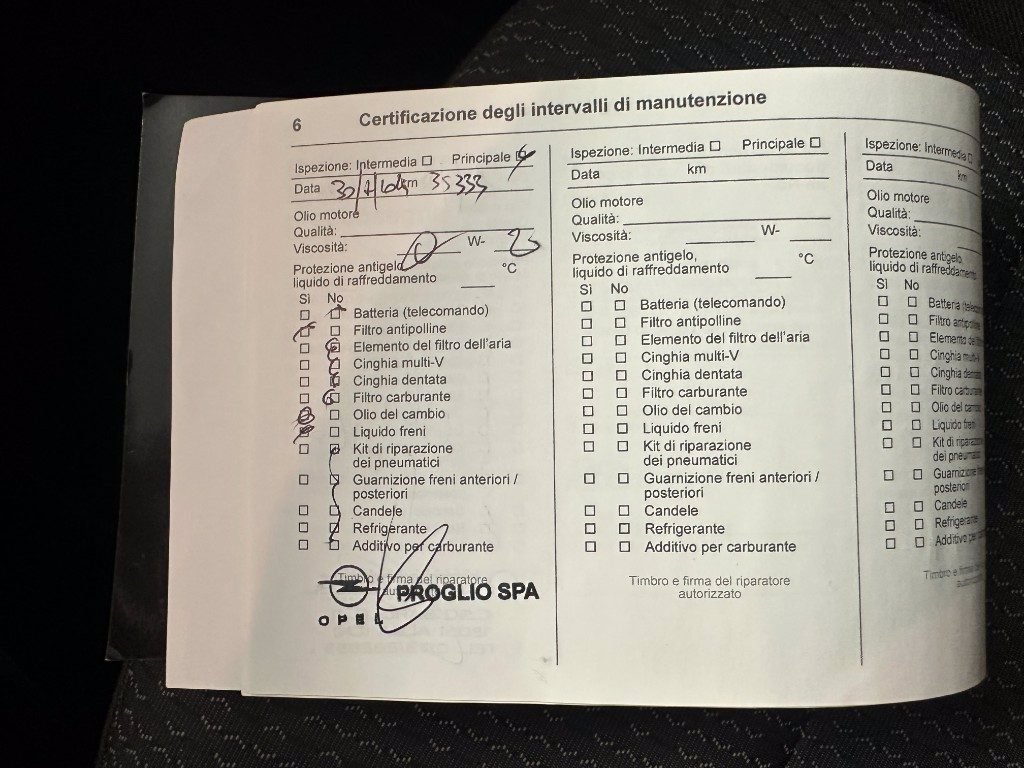 6 Certificazione degli intervalli di manutenzione
Ispezione: Intermedia ☐ Principale ☑
Data km 35333
Olio motore
Qualità:
Viscosità: 0 W-
Protezione antigelo,
liquido di raffreddamento °C
Sì No
Batteria (telecomando)
Filtro antipolline
Elemento del filtro dell'aria
Cinghia multi-V
Cinghia dentata
Filtro carburante
Olio del cambio
Liquido freni
Kit di riparazione
dei pneumatici
Guarnizione freni anteriori /
posteriori
Candele
Refrigerante
Additivo per carburante
Timbro e firma del riparatore
OPEL PROGLIO SPA
Ispezione: Intermedia ☐ Principale ☐
Data km
Olio motore
Qualità:
Viscosità: W-
Protezione antigelo,
liquido di raffreddamento °C
Sì No
☐ ☐ Batteria (telecomando)
☐ ☐ Filtro antipolline
☐ ☐ Elemento del filtro dell'aria
☐ ☐ Cinghia multi-V
☐ ☐ Cinghia dentata
☐ ☐ Filtro carburante
☐ ☐ Olio del cambio
☐ ☐ Liquido freni
☐ ☐ Kit di riparazione
dei pneumatici
☐ ☐ Guarnizione freni anteriori /
posteriori
☐ ☐ Candele
☐ ☐ Refrigerante
☐ ☐ Additivo per carburante
Timbro e firma del riparatore
autorizzato
Ispezione: Intermedia ☐
Data km
Olio motore
Qualità:
Viscosità:
Protezione antigelo,
liquido di raffreddamento
Sì No
☐ ☐ Batteria
☐ ☐ Filtro antipolline
☐ ☐ Elemento del
☐ ☐ Cinghia multi-V
☐ ☐ Cinghia dentata
☐ ☐ Filtro carburante
☐ ☐ Olio del cambio
☐ ☐ Liquido freni
☐ ☐ Kit di riparazione
dei pneumatici
☐ ☐ Guarnizione
posteriori
☐ ☐ Candele
☐ ☐ Refrigerante
☐ ☐ Additivo per
Timbro e firma
autorizzato